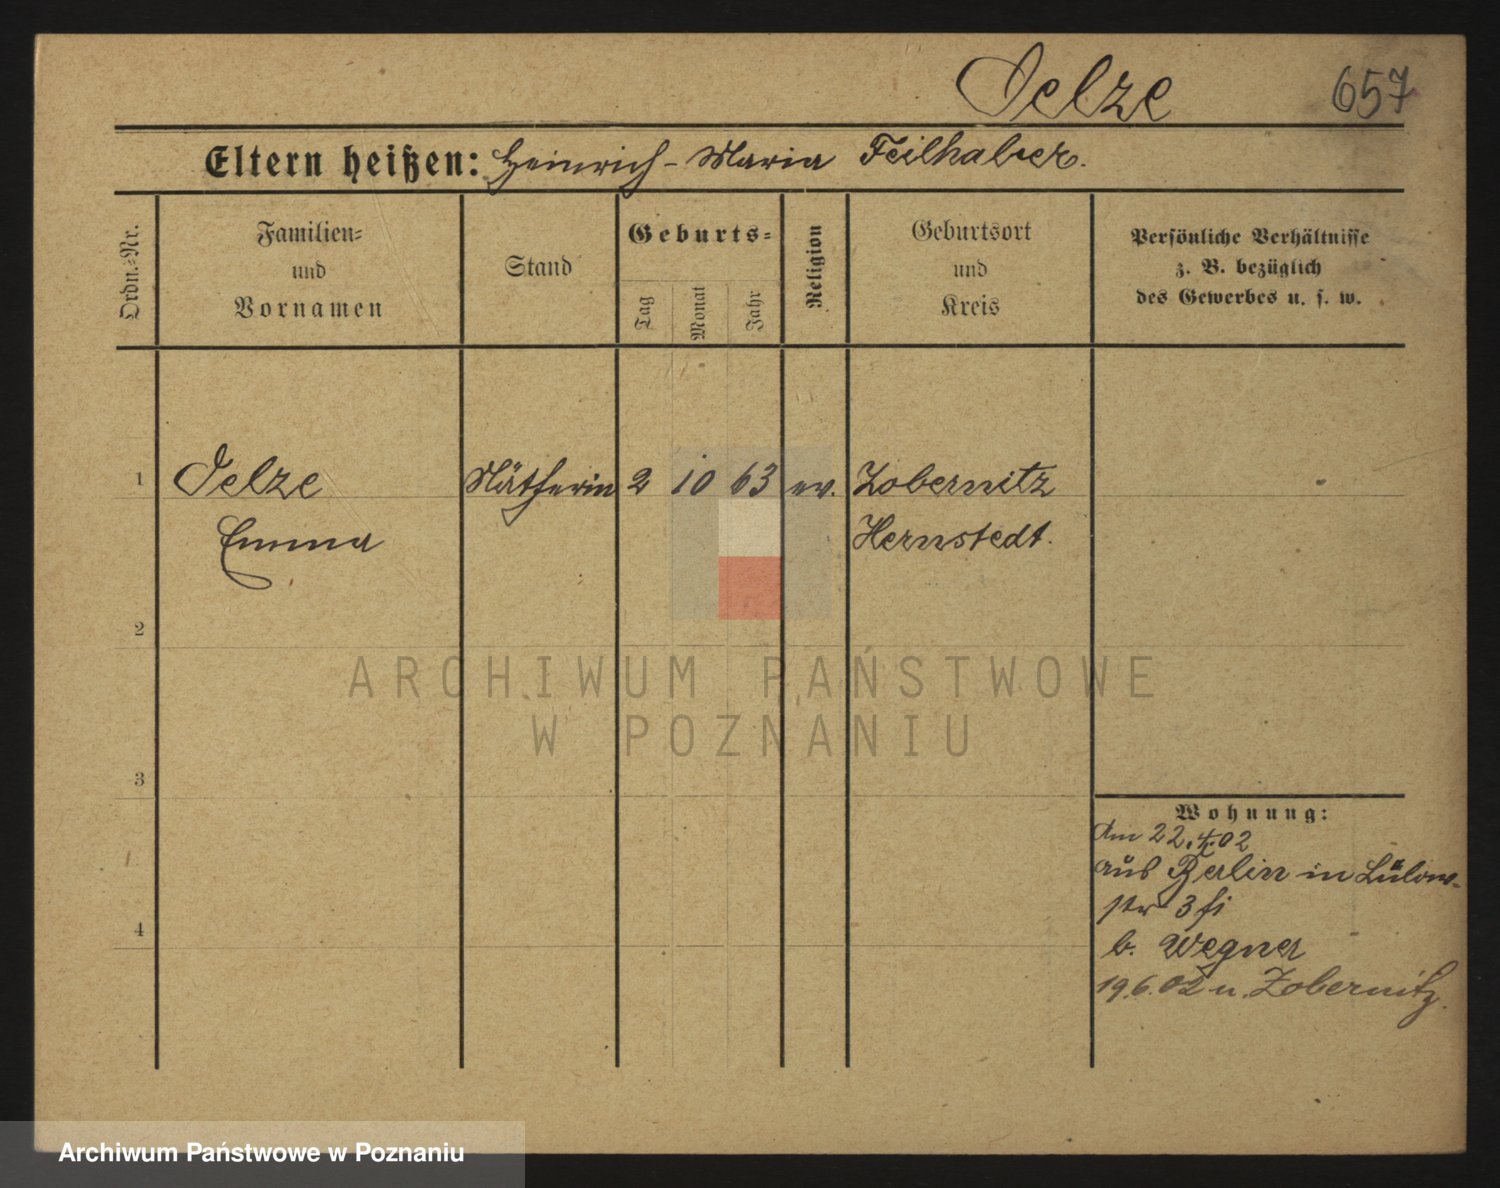 Oelze 657
Eltern heißen: Heinrich - Maria Feilhaber.
Ordn.=Nr.
Familien=
und
Vornamen
Stand
Geburts=
Tag
Monat
Jahr
Religion
Geburtsort
und
Kreis
Persönliche Verhältnisse
z. B. bezüglich
des Gewerbes u. s. w.
1 Oelze Nätherin 2 10 63 ev. Zobernitz
Emma Hernstedt.
2
3
4
Wohnung:
Am 22.4.02
aus Berlin in Lülow-
str 3
b. Wegner
19.6.02 n. Zobernitz.
ARCHIWUM PAŃSTWOWE
W POZNANIU
Archiwum Państwowe w Poznaniu